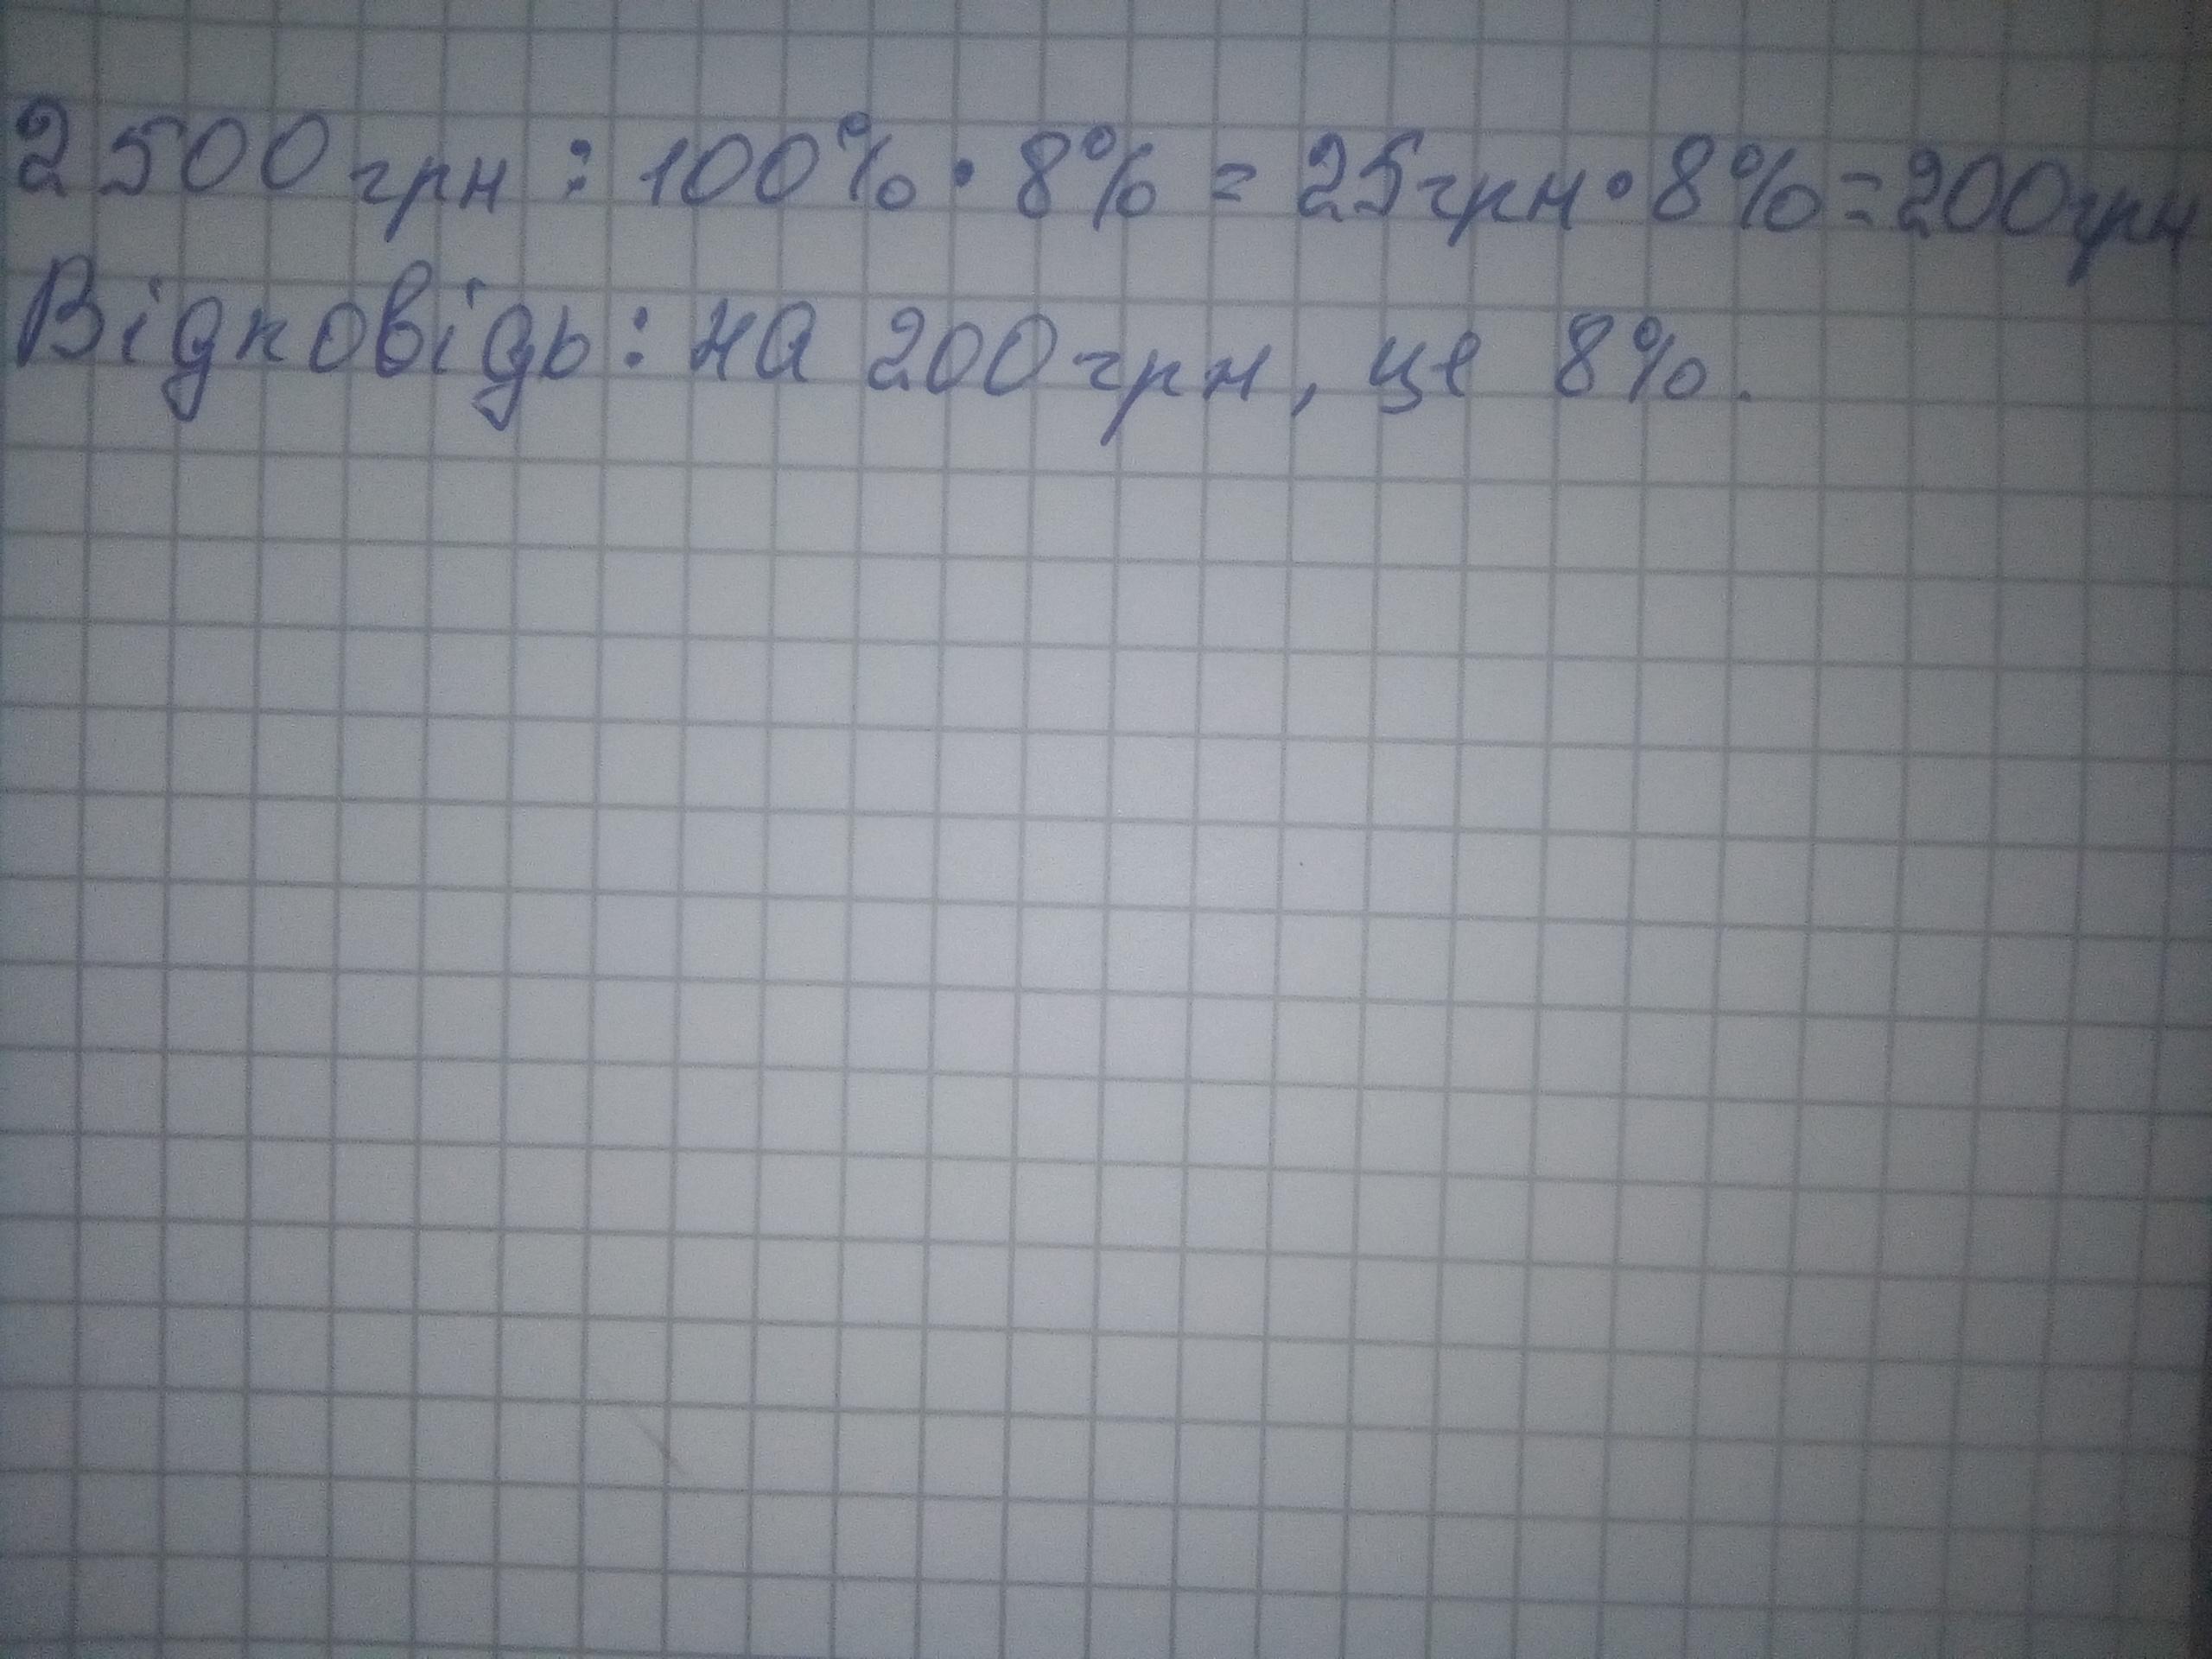 2500грн : 100% · 8% = 25грн · 8% = 200грн
Відповідь: на 200грн, це 8%.